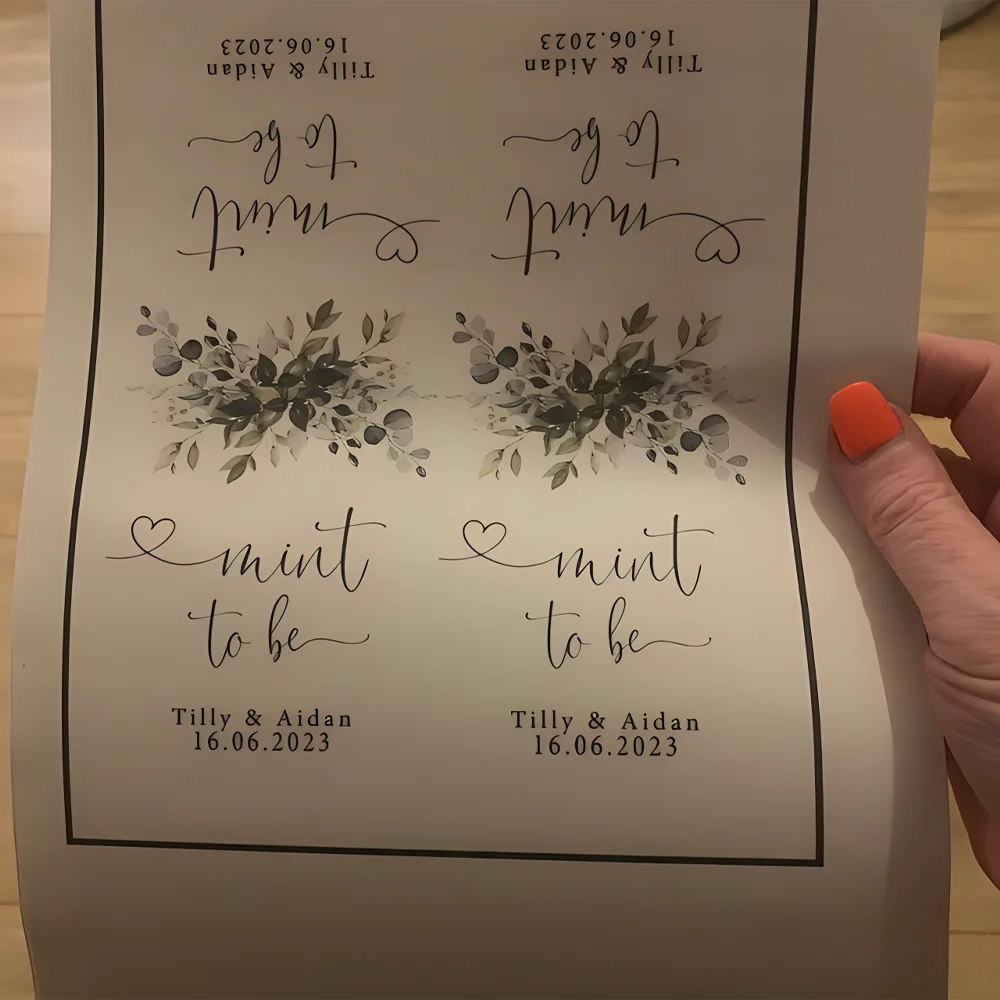 16.06.2023
Tilly & Aidan
to be
mint
16.06.2023
Tilly & Aidan
to be
mint
mint
to be
Tilly & Aidan
16.06.2023
mint
to be
Tilly & Aidan
16.06.2023